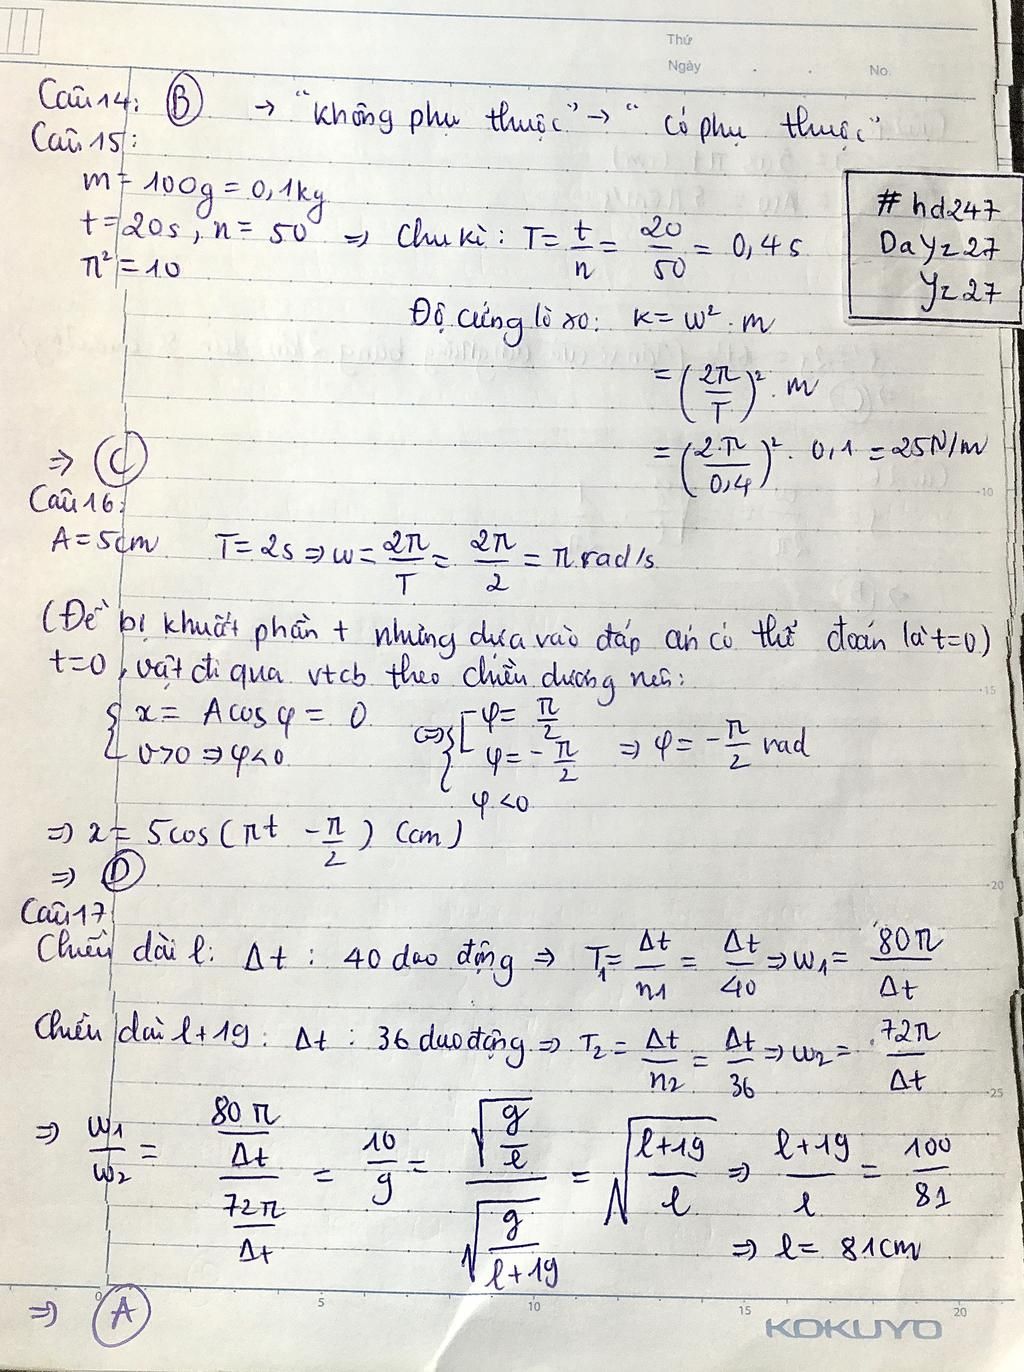 Thứ
Ngày . . No.
Câu 14: B → "không phụ thuộc" → "có phụ thuộc"
Câu 15:
m = 100g = 0,1kg
t = 20s, n = 50 ⇒ Chu kì: T = t/n = 20/50 = 0,4s
π² = 10
# hd247
Dayz27
yz27
Độ cứng lò xo: k = w².m
= (2π/T)². m
= (2.π/0,4)². 0,1 = 25N/m
⇒ C
Câu 16:
A = 5cm T = 2s ⇒ w = 2π/T = 2π/2 = π rad/s
(Đề bị khuất phần t nhưng dựa vào đáp án có thể đoán là t=0)
t=0, vật đi qua vtcb theo chiều dương nên:
{ x = Acosφ = 0
v>0 ⇒ φ<0
⇔ { [ φ = π/2
φ = -π/2
φ<0
⇒ φ = -π/2 rad
⇒ x = 5cos(πt - π/2) (cm)
⇒ D
Câu 17
Chiều dài l: Δt : 40 dao động ⇒ T₁ = Δt/n1 = Δt/40 ⇒ w₁ = 80π/Δt
Chiều dài l+19: Δt : 36 dao động ⇒ T₂ = Δt/n2 = Δt/36 ⇒ w₂ = 72π/Δt
⇒ w1/w2 = (80π/Δt)/(72π/Δt) = 10/9 = √(g/l)/√(g/(l+19)) = √((l+19)/l) ⇒ (l+19)/l = 100/81
⇒ l = 81cm
⇒ A
0 5 10 15 20
KOKUYO
10
15
20
25